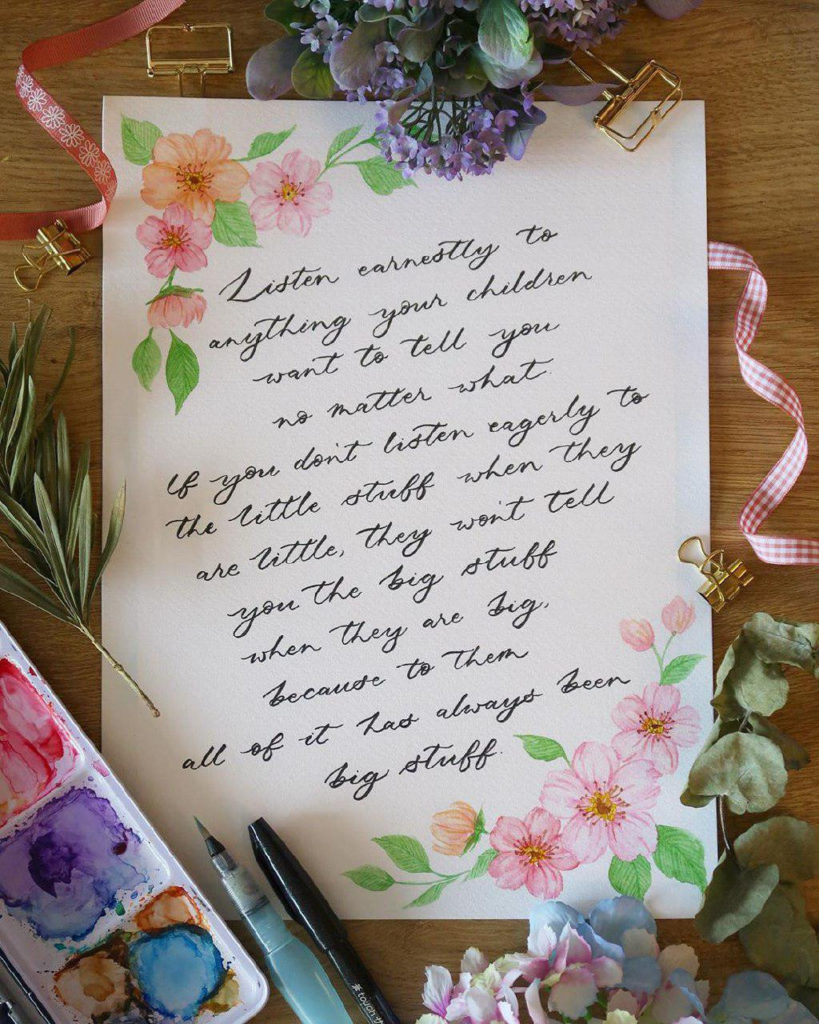 Listen earnestly to
anything your children
want to tell you
no matter what.
If you don't listen eagerly to
the little stuff when they
are little, they won't tell
you the big stuff
when they are big,
because to them
all of it has always been
big stuff.
touch